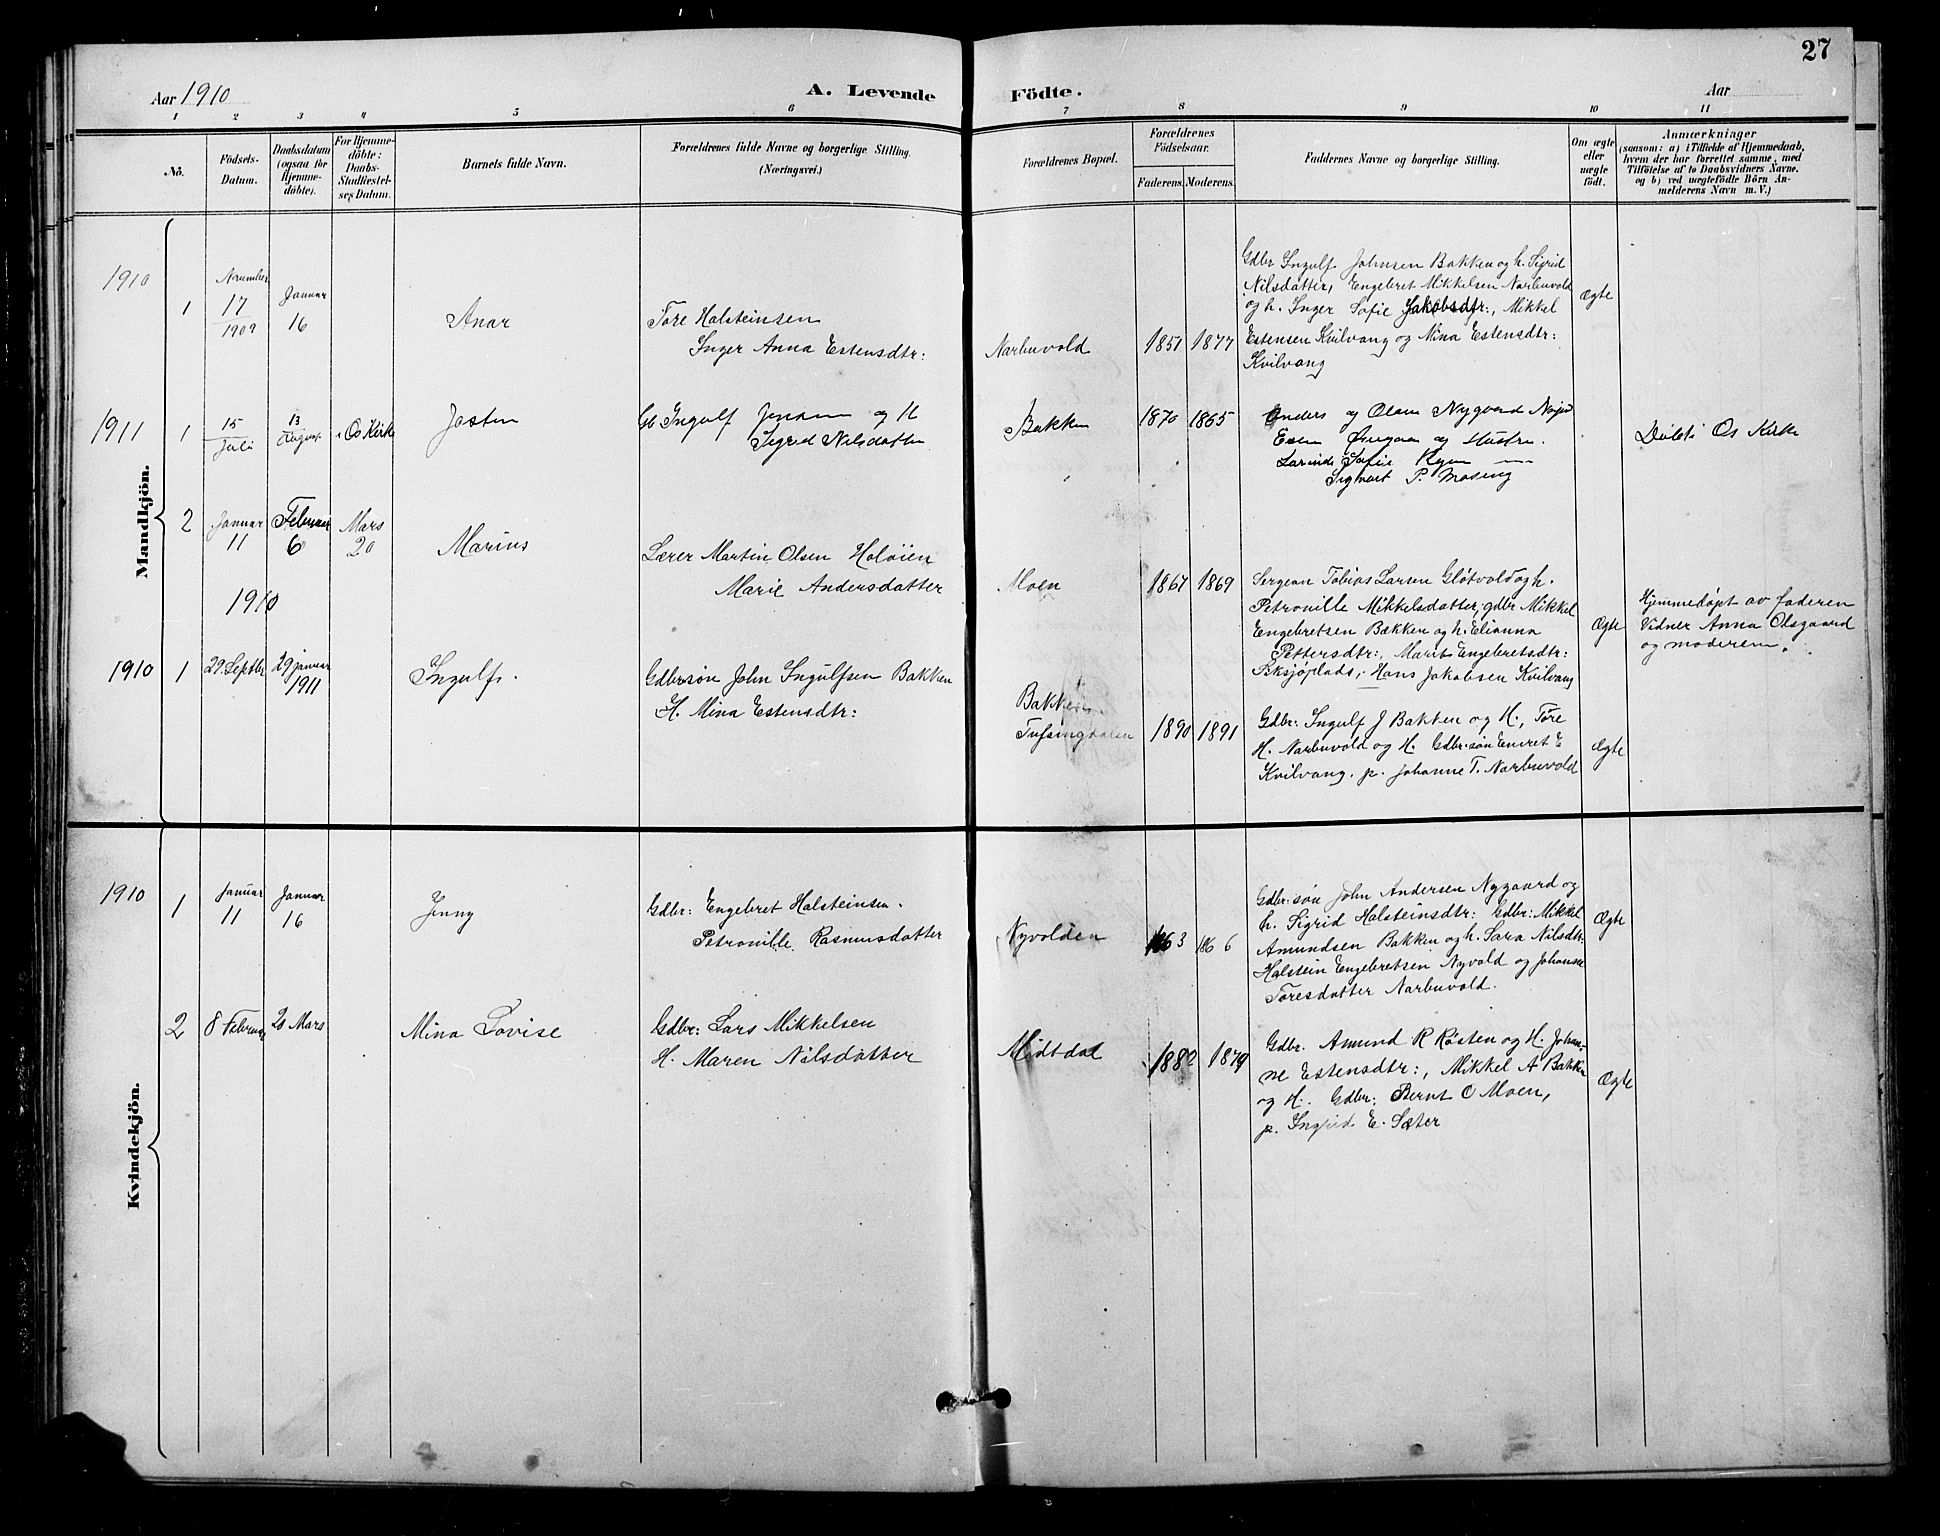 27
Aar 1910
A. Levende Födte.
Aar
1 2 3 4 5 6 7 8 9 10 11
No.
Födsels-
Datum.
Daabsdatum
(ogsaa for
Hjemme-
döbte).
For Hjemme-
döbte:
Daabs-
Stadfæstel-
ses Datum.
Barnets fulde Navn.
Forældrenes fulde Navne og borgerlige Stilling.
(Næringsvei.)
Forældrenes Bopæl.
Forældrenes
Födselsaar.
Faderens. Moderens.
Faddernes Navne og borgerlige Stilling.
Om ægte
eller
uægte
födt.
Anmærkninger
(saasom: a) i Tilfælde af Hjemmedaab,
hvem der har forrettet samme, med
Tilföielse af to Daabsvidners Navne,
og b) ved uægtefödte Börn An-
melderens Navn m. V.)
Mandkjön.
1910
1
November
17
1909
Januar
16
Anar
Tore Halsteinsen
Inger Anna Estensdtr:
Narbuvold
1851 1877
Gdbr Ingulf Johnsen Bakken og h. Sigrid
Nilsdatter, Engebret Mikkelsen Narbuvold
og h. Inger Sofie Jakobsdtr:, Mikkel
Estensen Kvilvang og Mina Estensdtr:
Kvilvang
Ægte
1911
1
15
Juli
13
August
i Os Kirke
Josten
Ingulf og H
Sigrid Nilsdatter
Bakken
1870 1865
Anders og Olava Nygaard
og Hustru.
Sofie
Sigvart P. Moseng
Døbt i Os Kirke
2
Januar
11
1910
Februar
6
Mars
20
Marius
Lærer Martin Olsen Holøien
Marie Andersdatter
Moen
1867 1869
Sergean Tobias Larsen Gløtvold og h.
Petronille Mikkelsdatter, gdbr Mikkel
Engebretsen Bakken og h. Elianna
Pettersdtr:, Marit Engebretsdtr:
Hans Jakobsen Kvilvang
Ægte
Hjemmedøpt av faderen
Vidner Anna Olsgaard
og moderen.
1910
1
29. Septbr
29 januar
1911
Ingulf.
Gdbrsøn John Ingulfsen Bakken
H. Mina Estensdtr:
Bakken
Tufsingdalen
1890 1891
Gdbr: Ingulf J Bakken og H., Tore
H. Narbuvold og H. Gdbr.søn Enevet E
Kvilvang. p. Johanne T. Narbuvold
Ægte
Kvindekjön.
1910
1
Januar
11
Januar
16
Jenny
Gdbr: Engebret Halsteinsen.
Petronille Rasmusdatter
Nyvolden
1863 1866
Gdbr.søn John Andersen Nygaard og
h. Sigrid Halsteinsdtr: Gdbr: Mikkel
Amundsen Bakken og h. Sara Nilsdtr:
Halstein Engebretsen Nyvold og Johanne
Toresdatter Narbuvold.
Ægte
2
8 Februar
20 Mars
Mina Lovise
Gdbr: Lars Mikkelsen
H. Maren Nilsdatter
Midtdal
1882 1879
Gdbr. Amund R Røsten og H. Johan-
ne Estensdtr:, Mikkel A Bakken
og H. Gdbr: Bernt O Moen,
p. Ingrid E. Sæter
Ægte